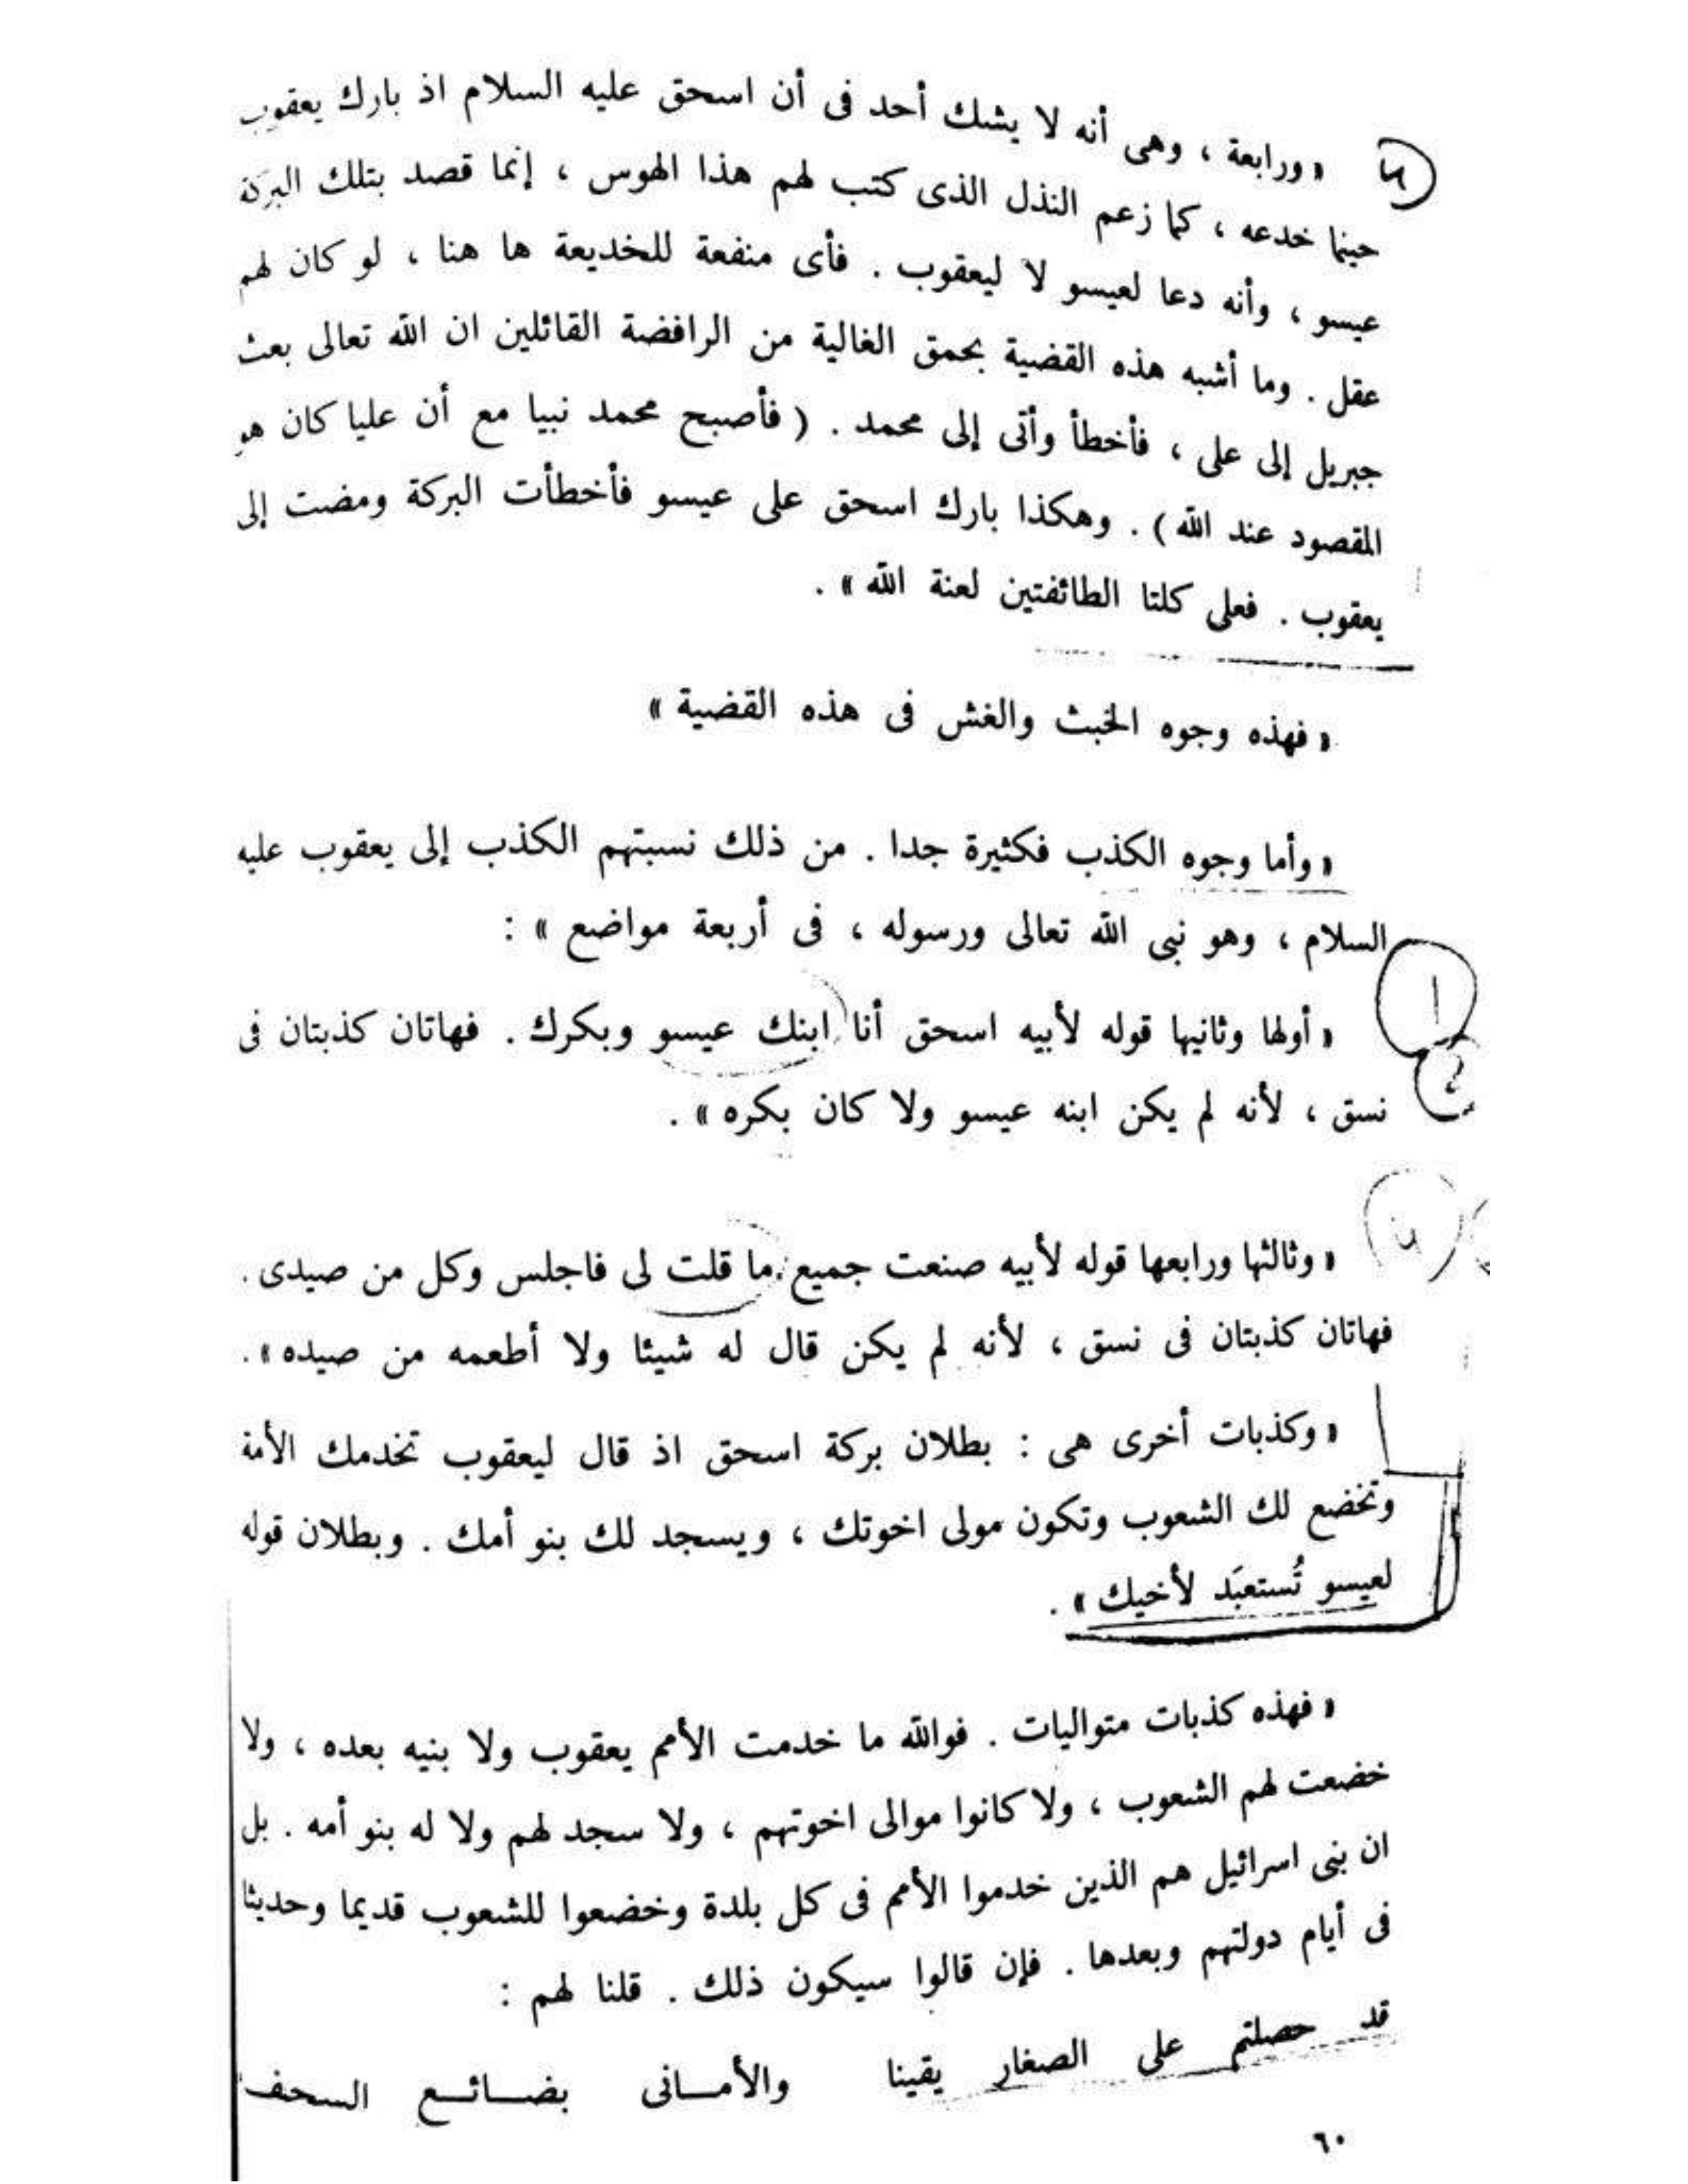 « ورابعة ، وهى أنه لا يشك أحد فى أن اسحق عليه السلام اذ بارك يعقوب
حينما خدعه ، كما زعم النذل الذى كتب لهم هذا الهوس ، إنما قصد بتلك البركة
عيسو ، وأنه دعا لعيسو لا ليعقوب . فأى منفعة للخديعة ها هنا ، لو كان لهم
عقل . وما أشبه هذه القضية بحمق الغالية من الرافضة القائلين ان الله تعالى بعث
جبريل إلى على ، فأخطأ وأتى إلى محمد . ( فأصبح محمد نبيا مع أن عليا كان هو
المقصود عند الله ) . وهكذا بارك اسحق على عيسو فأخطأت البركة ومضت إلى
يعقوب . فعلى كلتا الطائفتين لعنة الله » .
« فهذه وجوه الخبث والغش فى هذه القضية »
« وأما وجوه الكذب فكثيرة جدا . من ذلك نسبتهم الكذب إلى يعقوب عليه
السلام ، وهو نبى الله تعالى ورسوله ، فى أربعة مواضع » :
١
« أولها وثانيها قوله لأبيه اسحق أنا ابنك عيسو وبكرك . فهاتان كذبتان فى
نسق ، لأنه لم يكن ابنه عيسو ولا كان بكره » .
« وثالثها ورابعها قوله لأبيه صنعت جميع ما قلت لى فاجلس وكل من صيدى .
فهاتان كذبتان فى نسق ، لأنه لم يكن قال له شيئا ولا أطعمه من صيده » .
« وكذبات أخرى هى : بطلان بركة اسحق اذ قال ليعقوب تخدمك الأمة
وتخضع لك الشعوب وتكون مولى اخوتك ، ويسجد لك بنو أمك . وبطلان قوله
لعيسو تُستعبَد لأخيك » .
« فهذه كذبات متواليات . فوالله ما خدمت الأمم يعقوب ولا بنيه بعده ، ولا
خضعت لهم الشعوب ، ولا كانوا موالى اخوتهم ، ولا سجد لهم ولا له بنو أمه . بل
ان بنى اسرائيل هم الذين خدموا الأمم فى كل بلدة وخضعوا للشعوب قديما وحديثا
فى أيام دولتهم وبعدها . فإن قالوا سيكون ذلك . قلنا لهم :
قد حصلتم على الصغار يقينا والأمــانى بضــائــع السخف
٦٠